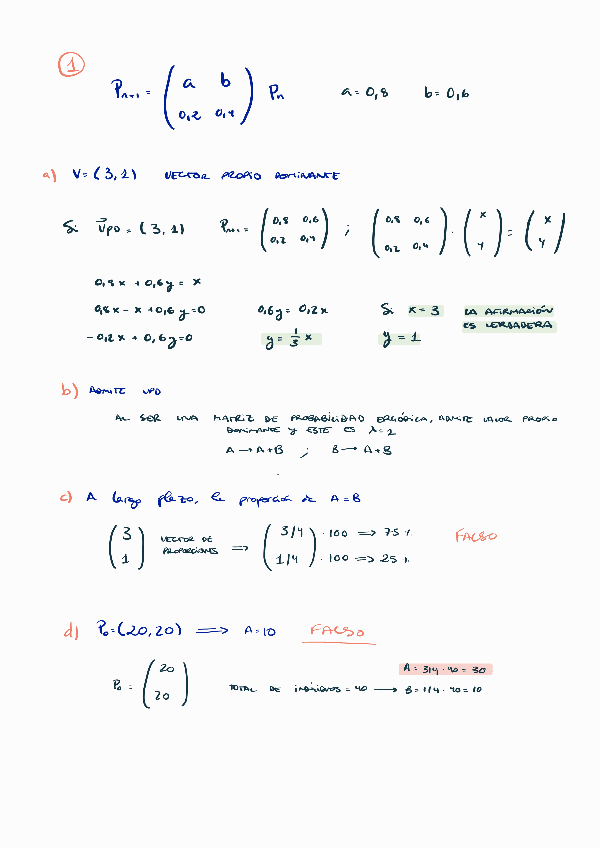 1
Pn+1 = ( a b ; 0,2 0,4 ) Pn a = 0,8 b = 0,6
a) V = (3,1) VECTOR PROPIO DOMINANTE
Si VPD = (3,1) Pn+1 = ( 0,8 0,6 ; 0,2 0,4 ) ; ( 0,8 0,6 ; 0,2 0,4 ) · ( x ; y ) = ( x ; y )
0,8x + 0,6y = x
0,8x - x + 0,6y = 0 0,6y = 0,2x Si x = 3 LA AFIRMACIÓN ES VERDADERA
-0,2x + 0,6y = 0 y = 1/3 x y = 1
b) ADMITE VPD
AL SER UNA MATRIZ DE PROBABILIDAD ERGÓDICA, ADMITE VALOR PROPIO
DOMINANTE Y ESTE ES λ = 1
A → A+B ; B → A+B
c) A largo plazo, la proporción de A = B
( 3 ; 1 ) VECTOR DE PROPORCIONES ⇒ ( 3/4 ; 1/4 ) · 100 ⇒ 75 % · 100 ⇒ 25 % FALSO
d) P0 = (20,20) ⇒ A = 10 FALSO
A = 3/4 · 40 = 30
P0 = ( 20 ; 20 ) TOTAL DE INDIVIDUOS = 40 → B = 1/4 · 40 = 10